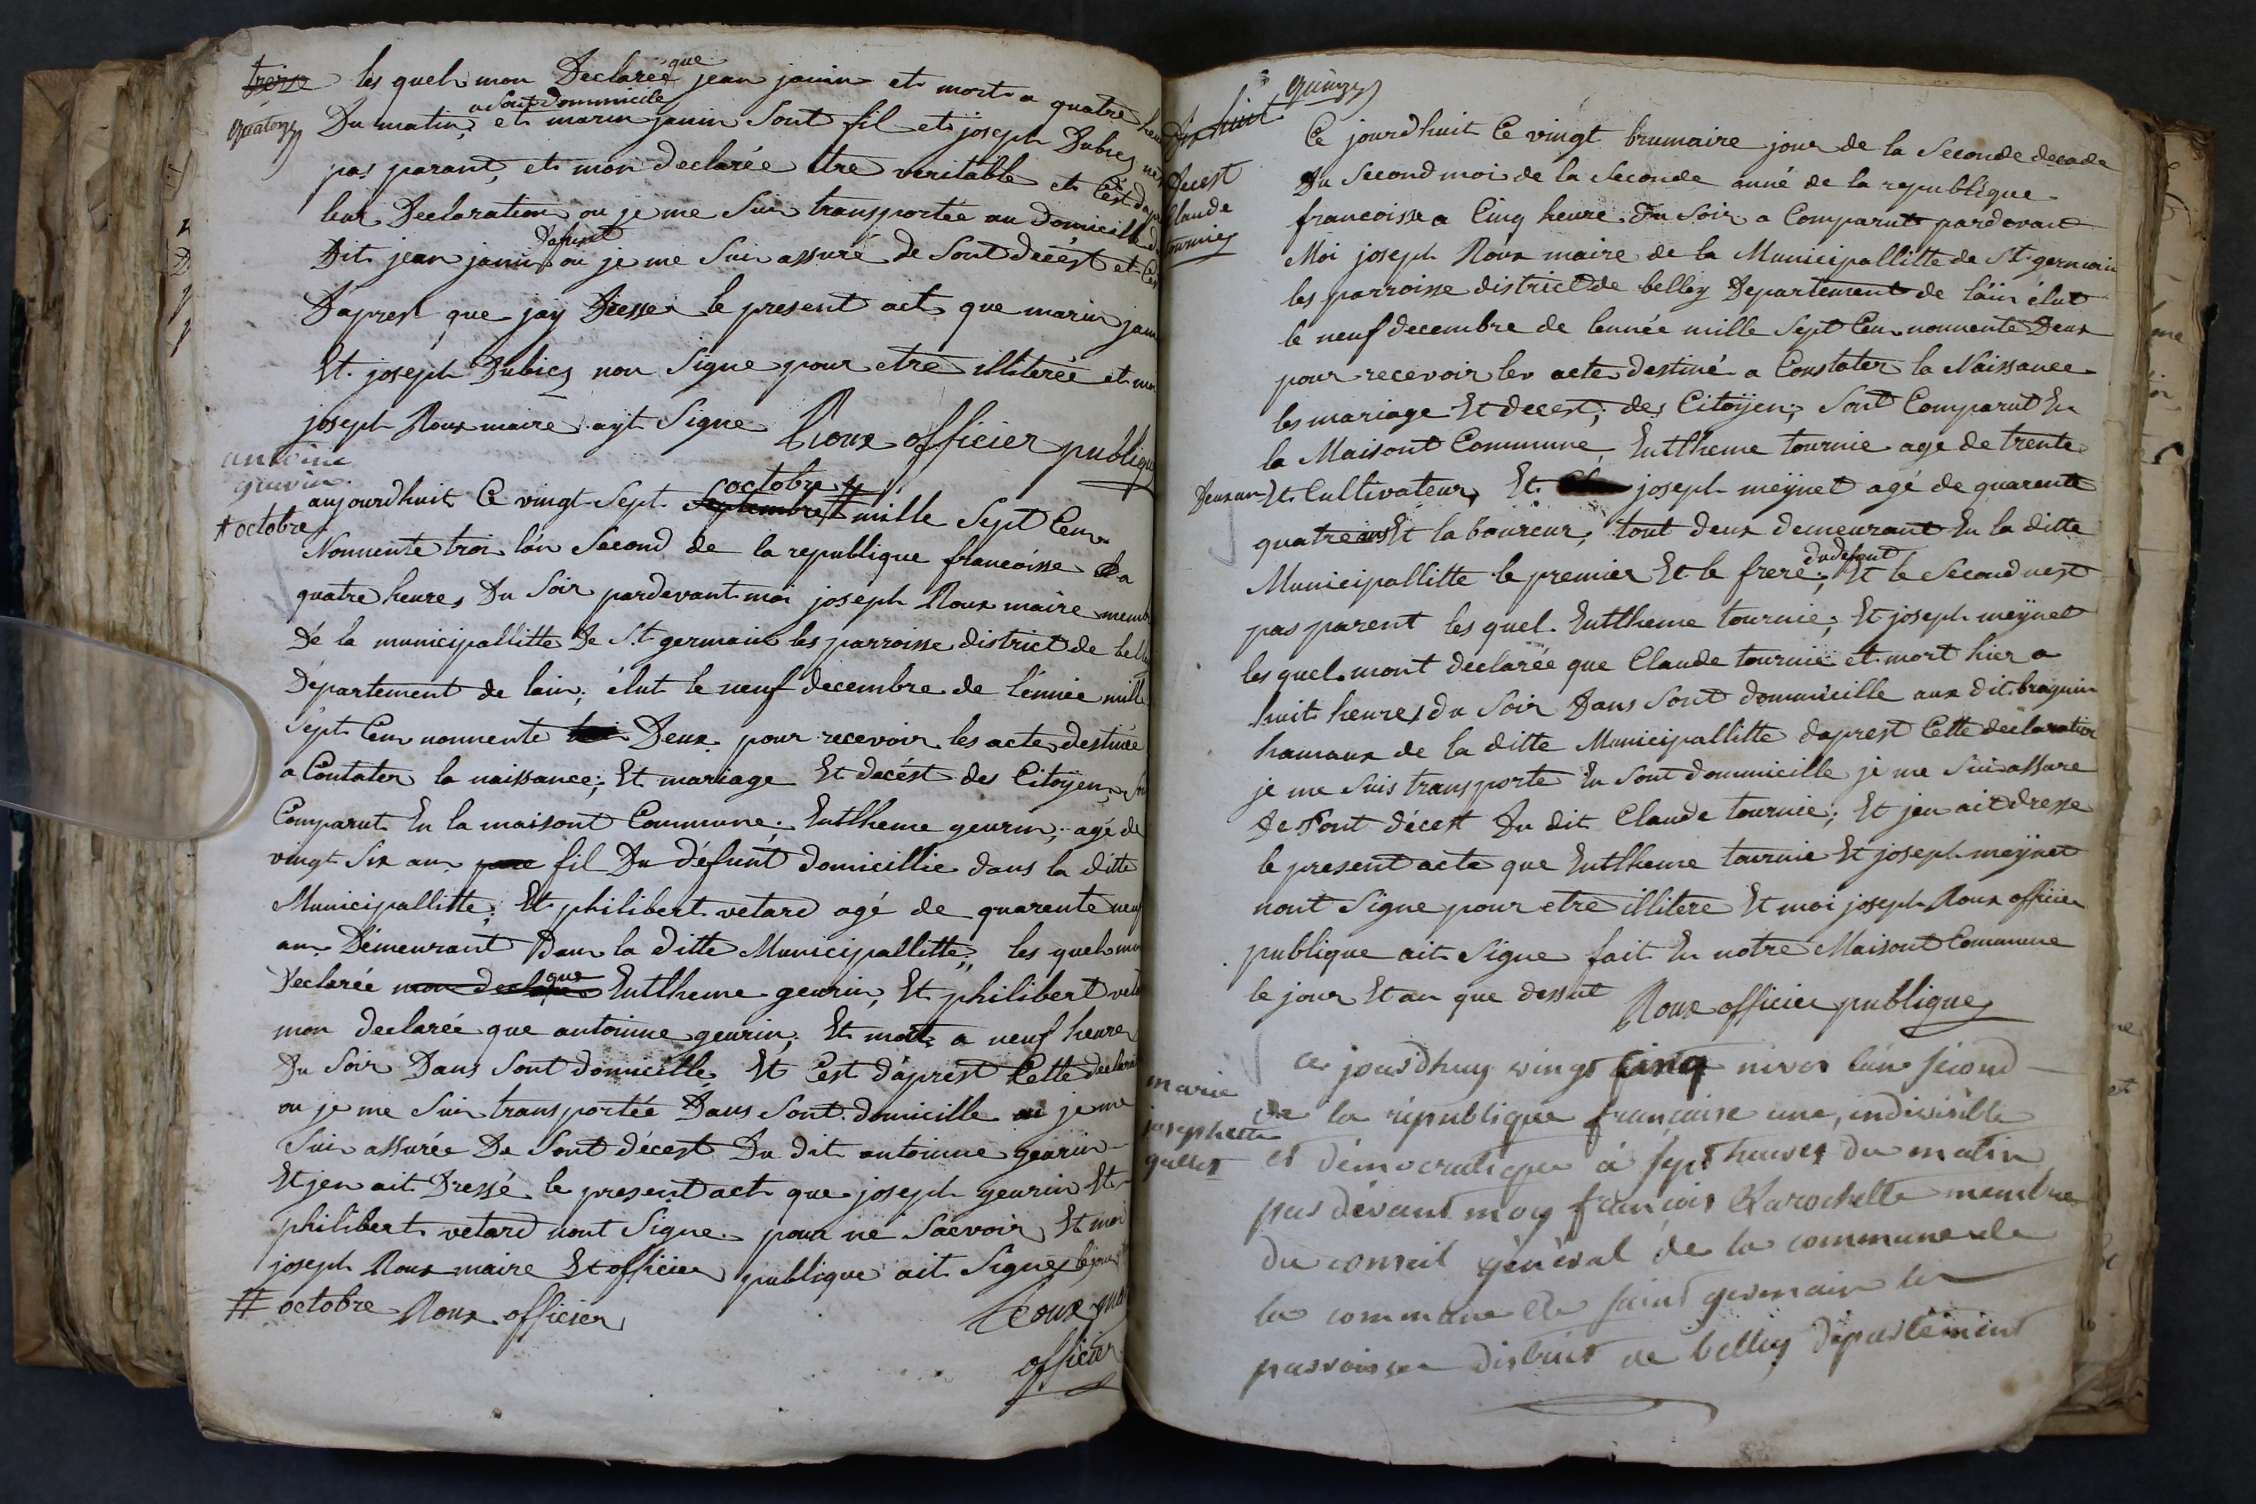 treize
quatorze
les quel mon Declarée que jean janin et mort a quatre heu
Du matin, a sont dommicile et marin janin sont fil et joseph Dubiez nes
pas parant, et mon declarée etre veritable et C'est dap
leur Declaration ou je me suis transportée au Domicille d
Dit jean janin Defunt ou je me suis assuré de sont decést et Ces
D'aprest que jay Dresser le present act que marin jani
Et joseph Dubiez non signe pour etre illiterée et moi
joseph Roux maire ayt signe Roux officier publique
antoine
geurin
# octobre
aujourdhuit Ce vingt sept Septembre octobre # mille sept Cen
Nonnente troi l'an second de la republique francoisse a
quatre heures Du soir pardevant moi joseph Roux maire memb
De la municipallitte De St germain les parroisse district de bell
Département de lain; élut le neuf decembre de l'énnée mille
sept Cen nonnente troi Deux pour recevoir les acte destinée
a Contater la naissance; Et mariage Et decést des Citoÿen, son
Comparut En la maisont Commune; Entlheme geurin; agé de
vingt six an pere fil Du défunt domicillie dans la ditte
Municipallitte; Et philibert vetard agé de quarente neuf
an Démeurant Dan la ditte Municipallitte, les quel mon
Declarée mon declare que Entlheme geurin, Et philibert veta
mon declarée que antoinne geurin, Et mort a neuf heure
Du soir Dans sont domicille, Et C'est d'aprest Cette declarat
ou je me suis transportée Dans sont domicille ou je me
suis assurée De sont décest Du dit antoinne geurin
Et jen ait Dressé le present act que joseph geurin Et
philibert vetard nont signe pour ne scevoir Et moi
joseph Roux maire Et officier publique ait signe le jour
# octobre Roux officier
Roux mai
officier
quinze
Dix huit
Decest
Claude
tournier
Ce jourdhuit Ce vingt brumaire jour de la seconde decade
Du second moi de la seconde anné de la republique
francoisse a Cinq heure Du soir a Comparut pardevant
Moi joseph Roux maire de la Municipallitte de St germain
les parroisse district de belley Departement de l'äin élut
le neuf decembre de lennée mille sept Cen nonnente Deux
pour recevoir les acte destiné a Constater la Naissance
les mariage Et decest; des Citoÿen; sont Comparut En
la Maisont Commune, Entlheme tournie age de trente
Deux an Et Cultivateur, Et joseph meÿnet agé de quarente
quatre ans Et laboureur, tout deux demeurant En la ditte
Municipallitte le premier Et le frere du defunt; Et le second nest
pas parent les quel Entlheme tournie; Et joseph meÿnet
les quel mont declarée que Claude tournie et mort hier a
huit heures du soir Dans sont dommicille aux dit braquin
hamaux de la ditte Municipallitte daprest Cette declaration
je me suis transporte En sont dommicille je me suis assure
De sont décest Du dit Claude tournie; Et jen ait dresse
le present acte que Entlheme tournie Et joseph meÿnet
nont signe pour etre illitere Et moi joseph Roux officier
publique ait signe fait En notre Maisont Commune
le jour Et an que dessut Roux officier publique
marie
josephette
gullet
ce jourd'huy vingt Cinq nivos l'an second
de la république française une, indivisible
et démocratique à sept heures du matin
par devant moy françois Larochette membre
du conseil général de la commune de
la commune de saint germain les
parroisse district de belley département